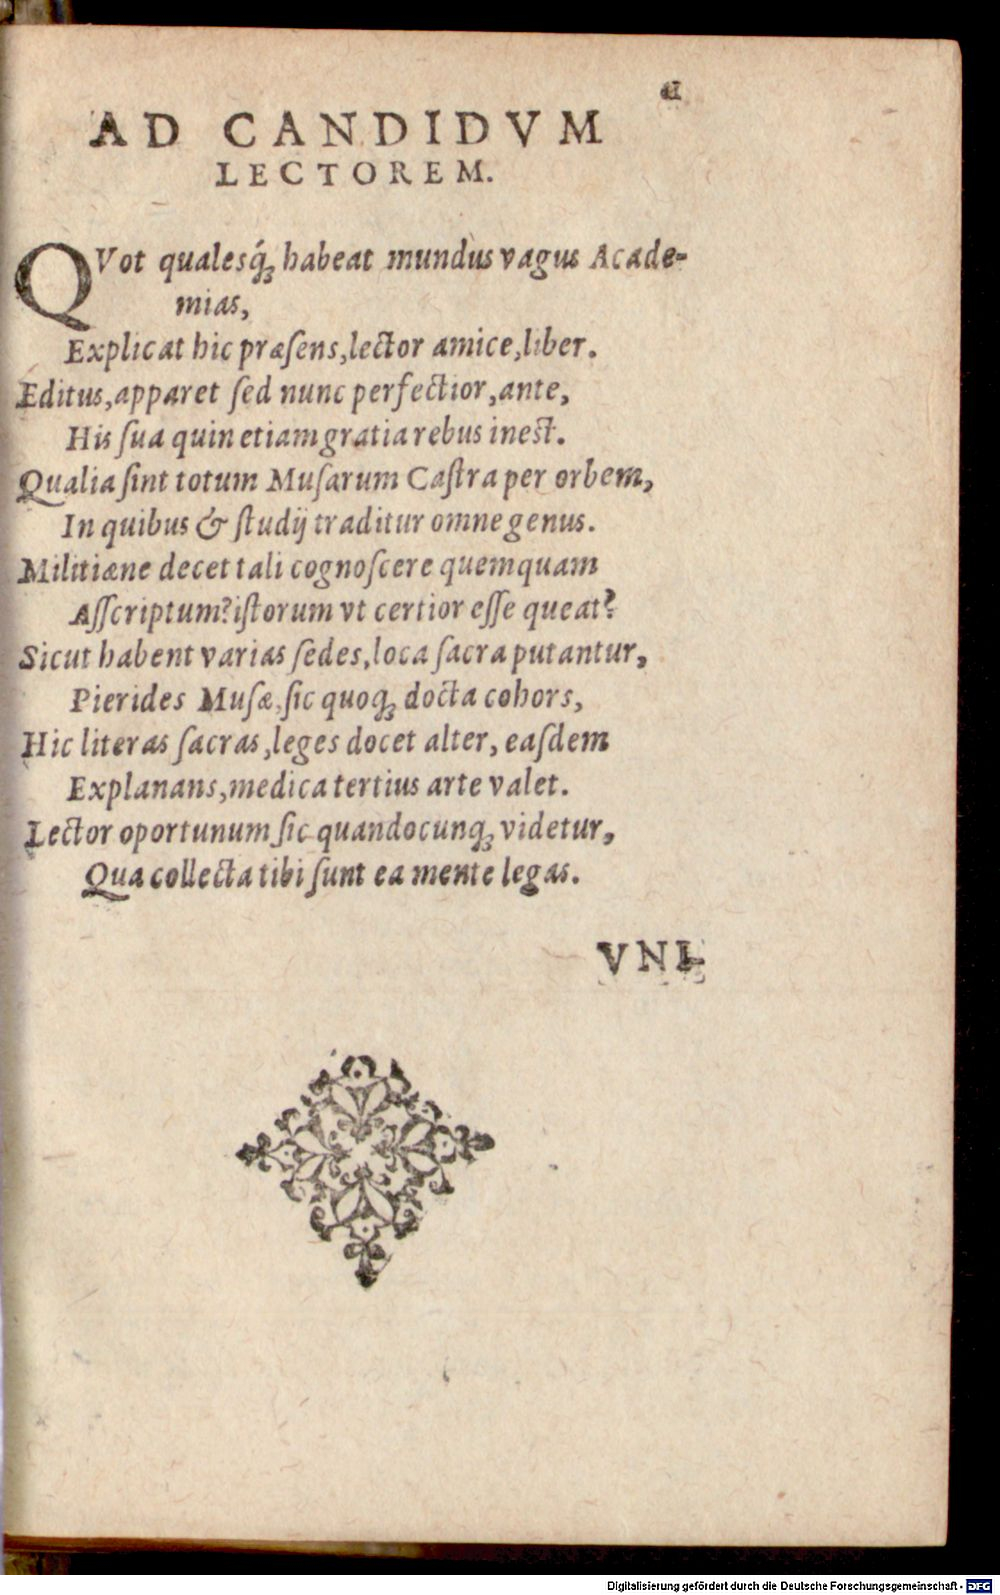 AD CANDIDVM
LECTOREM.
QVot qualesq́; habeat mundus vagus Acade-
mias,
Explicat hic præſens, lector amice, liber.
Editus, apparet ſed nunc perfectior, ante,
His ſua quin etiam gratia rebus ineſt.
Qualia ſint totum Muſarum Caſtra per orbem,
In quibus & ſtudij traditur omne genus.
Militiæne decet tali cognoſcere quemquam
Aſſcriptum? iſtorum vt certior eſſe queat?
Sicut habent varias ſedes, loca ſacra putantur,
Pierides Muſæ, ſic quoq; docta cohors,
Hic literas ſacras, leges docet alter, eaſdem
Explanans, medica tertius arte valet.
Lector oportunum ſic quandocunq; videtur,
Qua collecta tibi ſunt ea mente legas.
VNI-
Digitalisierung gefördert durch die Deutsche Forschungsgemeinschaft - DFG